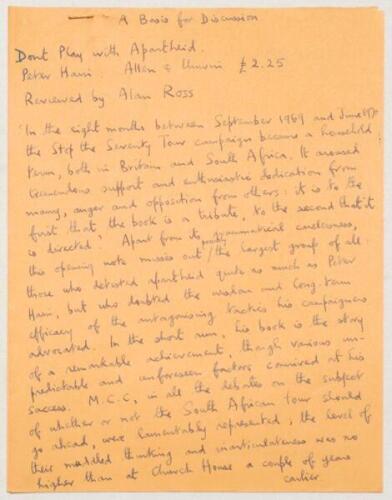 A Basis for Discussion
Dont Play with Apartheid.
Peter Hain Allen & Unwin £2.25
Reviewed by Alan Ross
'In the eight months between September 1969 and June 1970
the Stop the Seventy Tour campaign became a household
term, both in Britain and South Africa. It aroused
tremendous support and enthusiastic dedication from
many, anger and opposition from others: it is to the
first that the book is a tribute, to the second that it
is directed.' Apart from its grammatical carelessness,
this opening note misses out possibly the largest group of all:
those who detested apartheid quite as much as Peter
Hain, but who doubted the wisdom and long-term
efficacy of the antagonising tactics his campaigners
advocated. In the short run, his book is the story
of a remarkable achievement, though various un-
predictable and unforeseen factors connived at his
success. M.C.C, in all the debates on the subject
of whether or not the South African tour should
go ahead, were lamentably represented; the level of
their muddled thinking and inarticulateness was no
higher than at Church House a couple of years
earlier